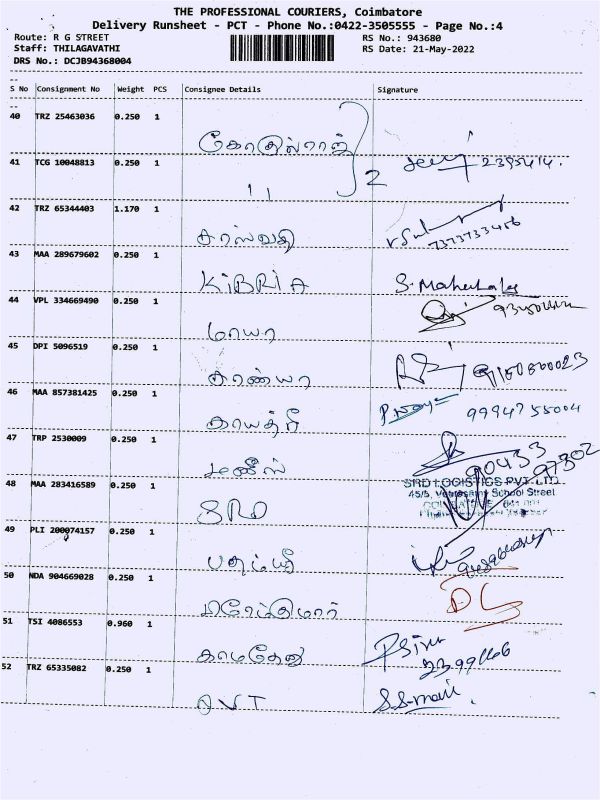 THE PROFESSIONAL COURIERS, Coimbatore
Delivery Runsheet - PCT - Phone No.:0422-3505555 - Page No.:4
Route: R G STREET RS No.: 943680
Staff: THILAGAVATHI RS Date: 21-May-2022
DRS No.: DCJB94368004
S No Consignment No Weight PCS Consignee Details Signature
40 TRZ 25463036 0.250 1
கோகுல்ராஜ்
41 TCG 10048813 0.250 1
" 2 2395414.
42 TRZ 65344403 1.170 1
சரஸ்வதி 7373733456
43 MAA 289679602 0.250 1
KiBRIA S.
44 VPL 334669490 0.250 1
மாயா
45 DPI 5096519 0.250 1
சரண்யா 9150800023
46 MAA 857381425 0.250 1
காயத்ரீ 9994755004
47 TRP 2530009 0.250 1
மணீஸ் 90433 97302
48 MAA 283416589 0.250 1
SRD LOGISTICS PVT. LTD
45/5, School Street
SRD
49 PLI 200074157 0.250 1
50 NDA 904669028 0.250 1
பிரேம்குமார்
51 TSI 4086553 0.960 1
காமதேனு
52 TRZ 65335082 0.250 1
AVT